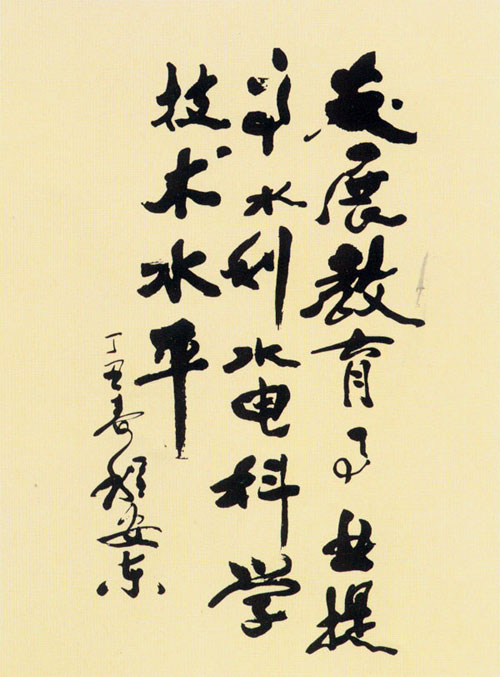 发展教育事业提
高水利水电科学
技术水平
丁丑春 程安东